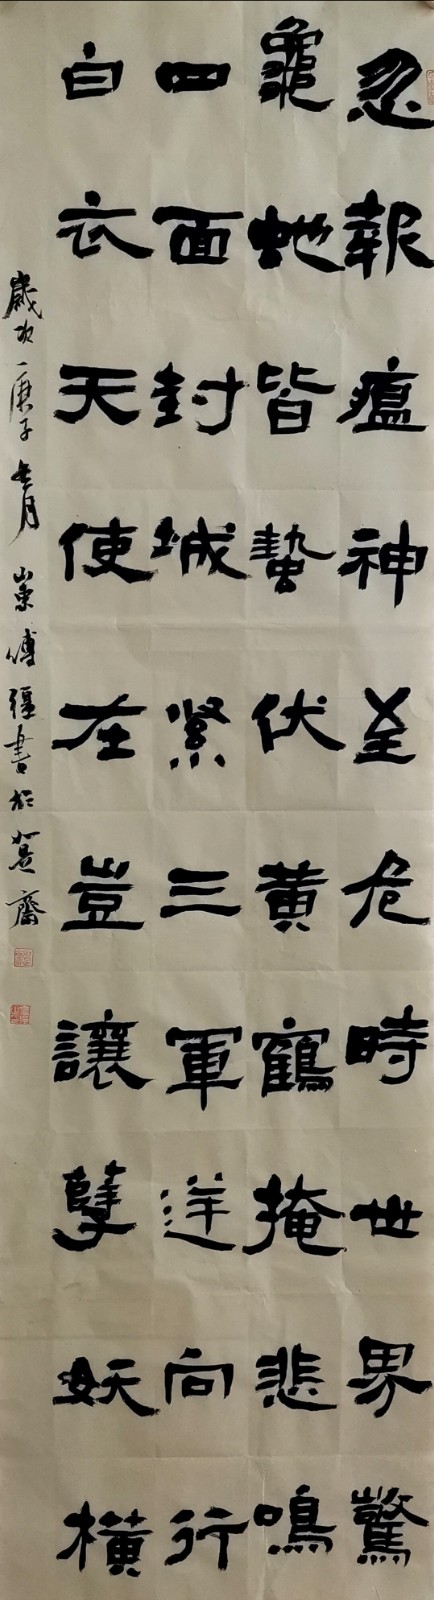 忽報瘟神至危時世界驚
龜蛇皆蟄伏黃鶴掩悲鳴
四面封城緊三軍逆向行
白衣天使在豈讓孽妖橫
歲次庚子春月山東傅疆書於齋